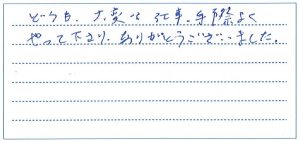 どうも、大変な仕事、手際よく
やって下さり、ありがとうございました。